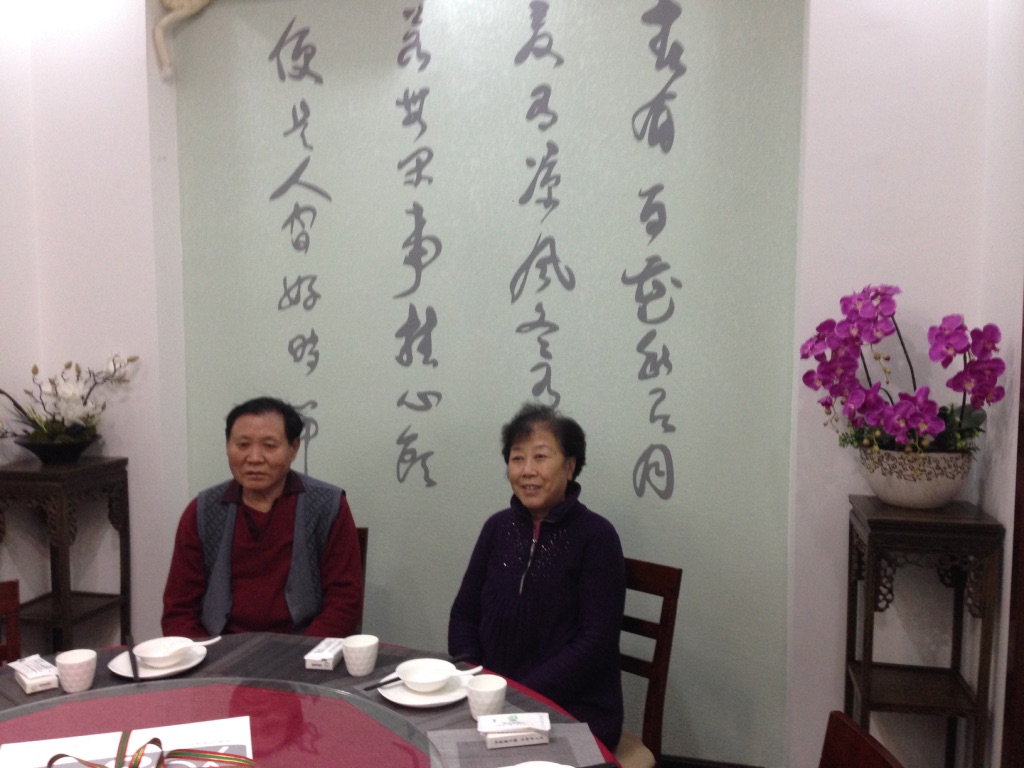 春有百花秋有月
夏有凉风冬有
若无闲事挂心头
便是人间好时节